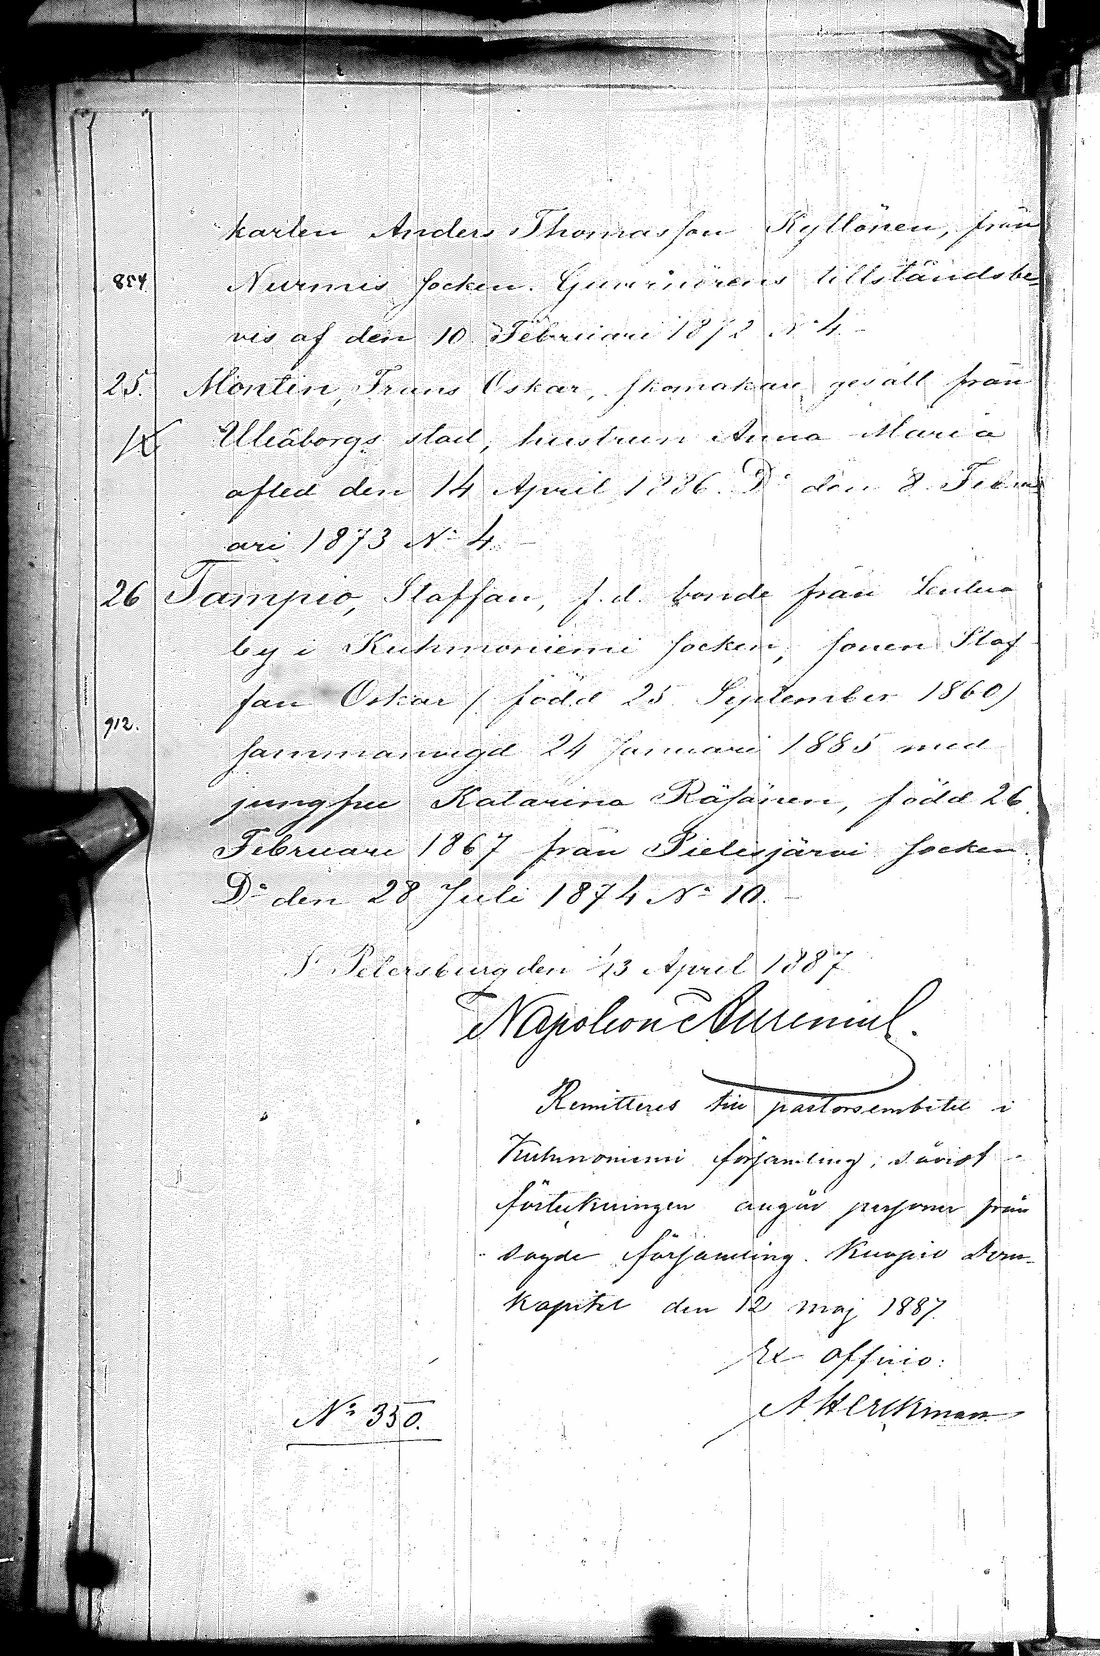 karlen Anders Thomasson Kyllönen, från
854. Nurmis socken. Guvernörens tillståndsbe=
vis af den 10 Februari 1872 No 4. –
25. Montin, Frans Oskar, skomakare gesäll från
Uleåborgs stad, hustrun Anna Maria
afled den 14 April 1886. Do den 8 Febru
ari 1873 No 4. –
26 Tampio, Staffan, f.d. bonde från
by i Kuhmoniemi socken, sonen Staf
fan Oskar / född 25 September 1860)
912. sammanvigd 24 Januari 1885 med
jungfru Katarina Räsänen, född 26
Februari 1867 från Pielisjärvi socken.
Do den 28 Juli 1874 No 10. –
St Petersburg den 1/13 April 1887
Napoleon
Remitteras till pastorsembetet i
Kuhmoniemi församling, såvidt
förteckningen angår personer från
sagde församling. Kuopio Dom-
kapitel den 12 maj 1887.
Ex officio:
No 350.